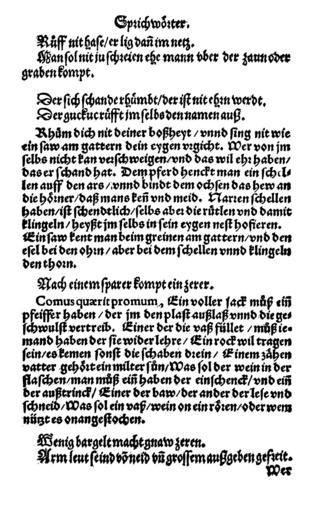 Sprichwörter.
Rüff nit hase/er lig dañ im netz.
Man sol nit ju schreien ehe mann vber der zaun oder
graben kompt.
Der sich schande rhümbt/der ist nit ehrn werdt.
Der guckuck rüfft jm selbs den namen auß.
Rhüm dich nit deiner boßheyt/vnnd sing nit wie
ein saw am gattern dein eygen vrgicht. Wer von jm
selbs nicht kan verschweigen/vnd das wil ehr haben/
das er schand hat. Dem pferd henckt man ein schel-
len auff den ars/vnnd bindt dem ochsen das hew an
die hörner/daß mans keñ vnd meid. Narren schellen
haben/ist schendtlich/selbs aber die rütlen vnd damit
klingeln/heyßt jm selbs in sein eygen nest hofieren.
Ein saw kent man beim greinen am gattern/vnd den
esel bei den ohrn/aber bei dem schellen vnnd klingeln
den thorn.
Nach einem sparer kompt ein zerer.
Comus quærit promum, Ein voller sack müß eiñ
pfeiffer haben/der jm den plast außlaß vnnd die ge-
schwulst vertreib. Einer der die vaß füllet/müß ie-
mand haben der sie wider lehre/Ein rock wil tragen
sein/es kemen sonst die schaben drein/Einem zähen
vatter gehört ein milter sün/Was sol der wein in der
flaschen/man müß eiñ haben der einschenck/vnd eiñ
der außtrinck/Einer der baw/der ander der lese vnd
schneid/Was sol ein vaß/wein on ein rören/oder wem
nützt es on angestochen.
Wenig bargelt macht gnaw zeren.
Arm leut seind vō neid vñ grossem außgeben gefreit.
Wer